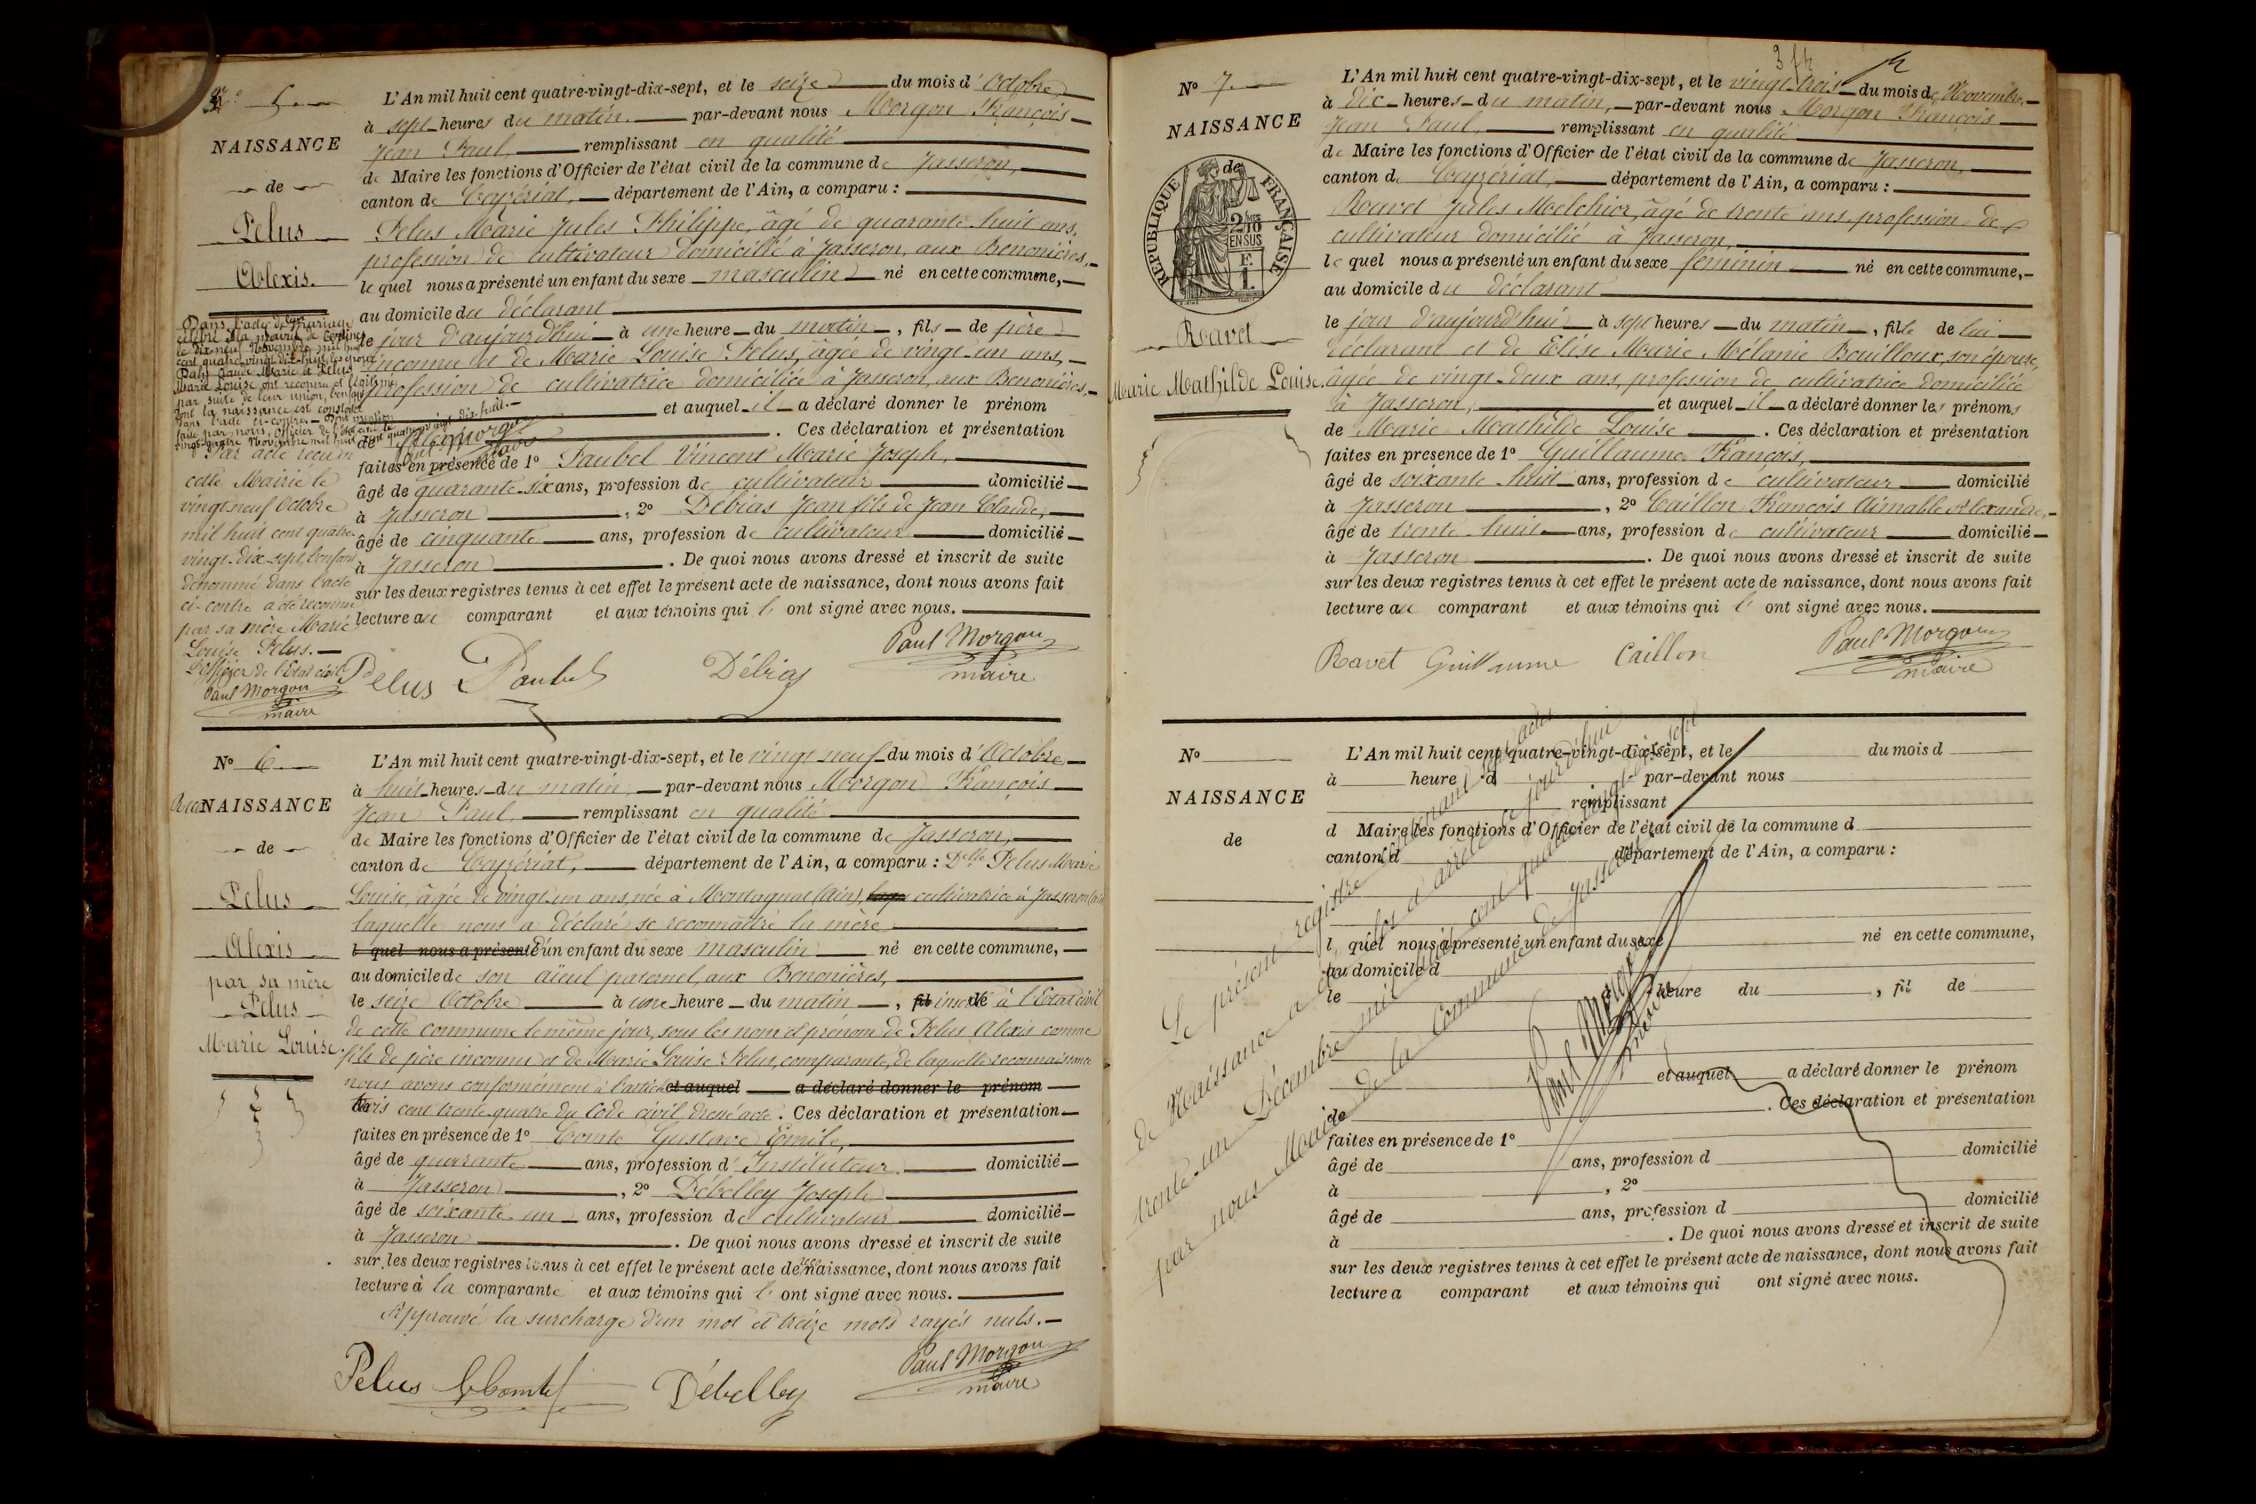 No 5.
NAISSANCE
de
Pelus
Alexis.
Dans l'acte de leur mariage
célébré à la mairie de
le dix neuf Novembre mil huit
cent quatre vingt dix-huit, les époux
Claude Marie et Pelus
Marie Louise ont reconnu et légitimé
par suite de leur union, l'enfant
dont la naissance est constatée
dans l'acte ci-contre. Dont mention
faite par nous, officier de l'état civil le
vingt-quatre Novembre mil huit cent quatre vingt dix-huit.
Paul Morgon
maire
Par acte reçu en
cette Mairie le
vingt neuf Octobre
mil huit cent quatre-
vingt-dix-sept, l'enfant
dénommé dans l'acte
ci-contre a été reconnu
par sa mère Marie
Louise Pelus.
L'Officier de l'Etat civil
Paul Morgon
maire
L'An mil huit cent quatre-vingt-dix-sept, et le seize du mois d'Octobre
à sept heures du matin. par-devant nous Morgon François
Jean Paul, remplissant en qualité
de Maire les fonctions d'Officier de l'état civil de la commune de Jasseron,
canton de Ceyzériat, département de l'Ain, a comparu :
Pelus Marie Jules Philippe, âgé de quarante huit ans,
profession de cultivateur domicilié à Jasseron, aux Bononières,
lequel nous a présenté un enfant du sexe masculin né en cette commune,
au domicile du déclarant
le jour d'aujourd'hui à une heure du matin, fils de père
inconnu et de Marie Louise Pelus, âgée de vingt un ans,
profession de cultivatrice domiciliée à Jasseron, aux Bononières,
et auquel il a déclaré donner le prénom
de Alexis. Ces déclaration et présentation
faites en présence de 1o Paubel Vincent Marie Joseph,
âgé de quarante-six ans, profession de cultivateur domicilié
à Jasseron, 2o Débias Jean fils de Jean Claude,
âgé de cinquante ans, profession de cultivateur domicilié
à Jasseron. De quoi nous avons dressé et inscrit de suite
sur les deux registres tenus à cet effet le présent acte de naissance, dont nous avons fait
lecture au comparant et aux témoins qui l' ont signé avec nous.
Pelus Paubel Débias Paul Morgon
maire
No 6.
NAISSANCE
de
Pelus
Alexis
par sa mère
Pelus
Marie Louise.
L'An mil huit cent quatre-vingt-dix-sept, et le vingt neuf du mois d'Octobre
à huit heures du matin, par-devant nous Morgon François
Jean Paul, remplissant en qualité
de Maire les fonctions d'Officier de l'état civil de la commune de Jasseron,
canton de Ceyzériat, département de l'Ain, a comparu : Delle Pelus Marie
Louise, âgée de vingt un ans, née à Montagnat (Ain), cultivatrice à Jasseron (Ain)
laquelle nous a déclaré se reconnaître la mère
l quel nous a présenté d'un enfant du sexe masculin né en cette commune,
au domicile de son aïeul paternel, aux Bononières,
le seize Octobre à une heure du matin, fil inscrit à l'Etat civil
de cette commune le même jour, sous les nom et prénom de Pelus Alexis comme
fils de père inconnu et de Marie Louise Pelus, comparante, de laquelle reconnaissance
nous avons conformément à l'article et auquel a déclaré donner le prénom
trois cent trente-quatre du Code civil, dressé acte. Ces déclaration et présentation
faites en présence de 1o Comte Gustave Emile,
âgé de quarante ans, profession d'Instituteur domicilié
à Jasseron, 2o Débelley Joseph
âgé de soixante un ans, profession de cultivateur domicilié
à Jasseron. De quoi nous avons dressé et inscrit de suite
sur les deux registres tenus à cet effet le présent acte de naissance, dont nous avons fait
lecture à la comparante et aux témoins qui l' ont signé avec nous.
Approuvé la surcharge d'un mot et treize mots rayés nuls.
Pelus GComte Débelley Paul Morgon
maire
No 7.
NAISSANCE
de
RÉPUBLIQUE FRANÇAISE
2/10
EN SUS
Ravet
Marie Mathilde Louise.
L'An mil huit cent quatre-vingt-dix-sept, et le vingt-trois du mois de Novembre
à dix heures du matin, par-devant nous Morgon François
Jean Paul, remplissant en qualité
de Maire les fonctions d'Officier de l'état civil de la commune de Jasseron,
canton de Ceyzériat, département de l'Ain, a comparu :
Ravet Jules Melchior, âgé de trente ans, profession de
cultivateur domicilié à Jasseron,
lequel nous a présenté un enfant du sexe féminin né en cette commune,
au domicile du déclarant
le jour d'aujourd'hui à sept heures du matin, fille de lui
déclarant et de Elise Marie Mélanie Bouilloux, son épouse,
âgée de vingt-deux ans, profession de cultivatrice domiciliée
à Jasseron, et auquel il a déclaré donner les prénoms
de Marie Mathilde Louise. Ces déclaration et présentation
faites en présence de 1o Guillaume François,
âgé de soixante huit ans, profession de cultivateur domicilié
à Jasseron, 2o Caillon François Aimable Alexandre,
âgé de trente huit ans, profession de cultivateur domicilié
à Jasseron. De quoi nous avons dressé et inscrit de suite
sur les deux registres tenus à cet effet le présent acte de naissance, dont nous avons fait
lecture au comparant et aux témoins qui l' ont signé avec nous.
Ravet Guillaume Caillon Paul Morgon
maire
No
NAISSANCE
de
L'An mil huit cent quatre-vingt-dix-sept, et le du mois d
à heure d par-devant nous
remplissant
d Maire les fonctions d'Officier de l'état civil de la commune d
canton d département de l'Ain, a comparu :
l quel nous a présenté un enfant du sexe né en cette commune,
au domicile d
le heure du , fil de
et auquel a déclaré donner le prénom
de . Ces déclaration et présentation
faites en présence de 1o
âgé de ans, profession d domicilié
à , 2o
âgé de ans, profession d domicilié
à . De quoi nous avons dressé et inscrit de suite
sur les deux registres tenus à cet effet le présent acte de naissance, dont nous avons fait
lecture a comparant et aux témoins qui ont signé avec nous.
Le présent registre contenant sept actes
de Naissance a été clos et arrêté ce jourd'hui
trente-un Décembre mil huit cent quatre vingt-dix-sept
par nous Maire de la Commune de Jasseron
Paul Morgon
maire